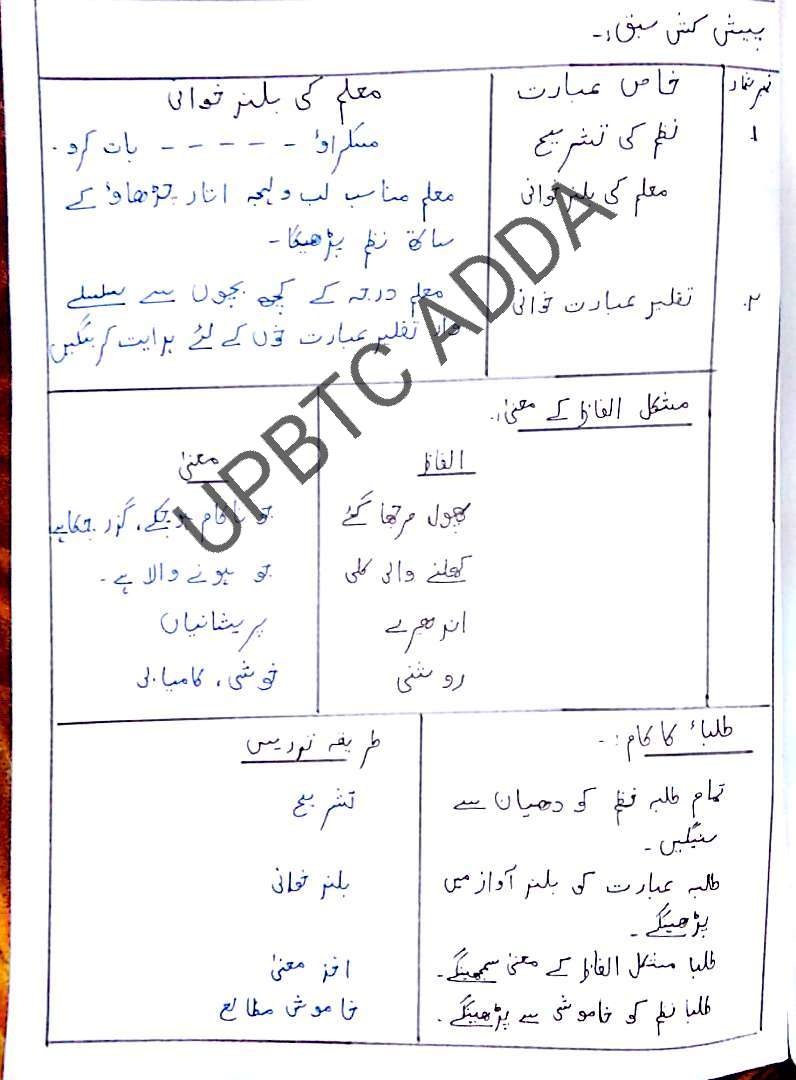 پیش کش سبق:-
نمبر شمار خاص عبارت معلم کی بلند خوانی
۱ نظم کی تشریح مسکراؤ - - - - - بات کرو.
معلم کی بلند خوانی معلم مناسب لب ولہجہ اتار چڑھاؤ کے
ساتھ نظم پڑھیگا-
۲. تقلیدِ عبارت خوانی معلم درجہ کے کچھ بچوں سے سلسلے
تقلیدِ عبارت کے لئے ہدایت کرینگیں
مشکل الفاظ کے معنیٰ:-
الفاظ معنیٰ
پھول مرجھا گئے جو ناکام ہوچکے، گزر چکا ہے
کھلنے والی کلی جو ہونے والا ہے-
اندھیرے پریشانیاں
روشنی خوشی، کامیابی
طلباء کا کام:- طریقہ تدریس
تمام طلبہ نظم کو دھیان سے تشریح
سنیگیں-
طلبہ عبارت کو بلند آواز میں بلند خوانی
پڑھینگے-
طلبا مشکل الفاظ کے معنی سمجھینگے- اخذ معنیٰ
طلبا نظم کو خاموشی سے پڑھینگے- خاموش مطالع
UPBTC ADDA